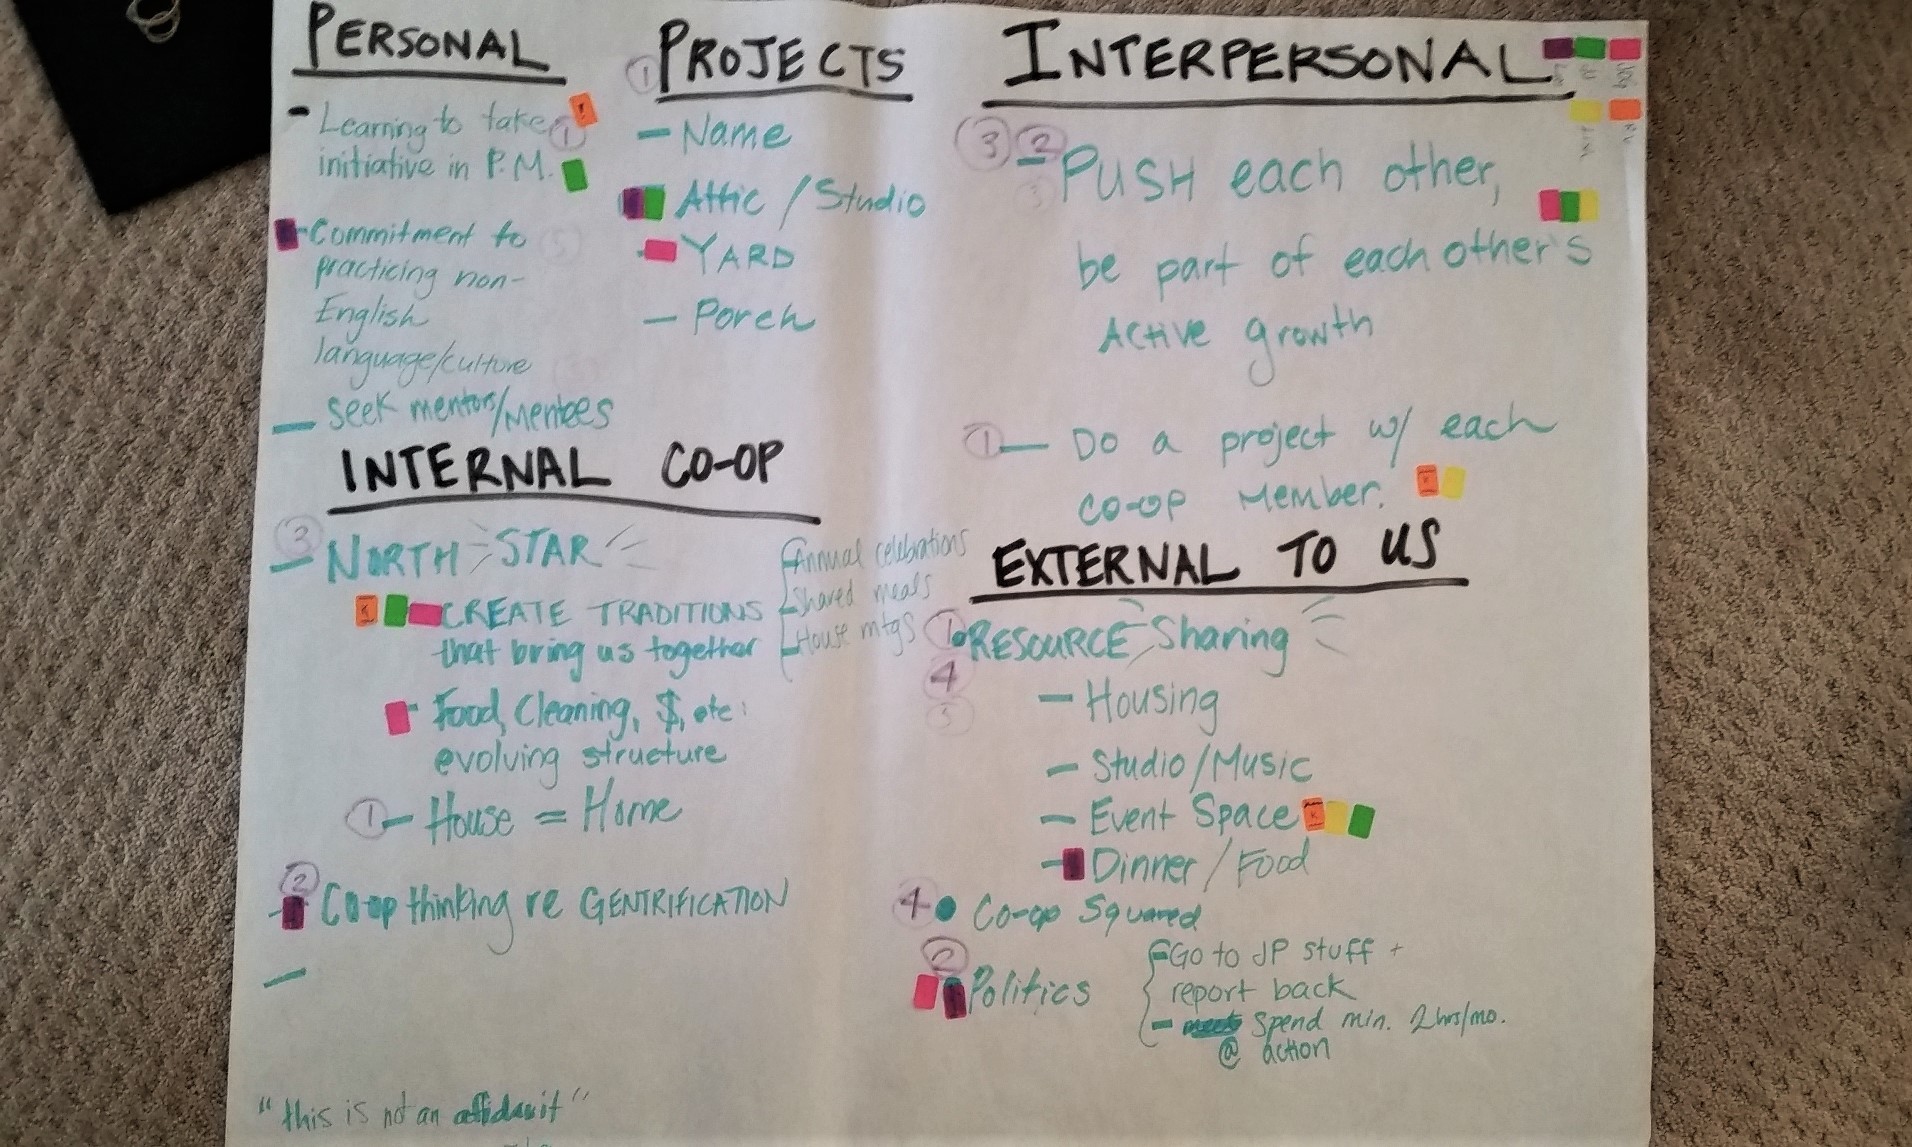 PERSONAL
- Learning to take 1
initiative in P.M.
- Commitment to
practicing non-
English
language/culture
- seek mentors/mentees
1 PROJECTS
- Name
Attic / Studio
- YARD
- Porch
INTERPERSONAL
3 2 - PUSH each other,
be part of each other's
Active growth
1 - Do a project w/ each
co-op member.
INTERNAL CO-OP
3
- NORTH STAR
CREATE TRADITIONS
that bring us together
- Annual celebrations
- Shared meals
- House mtgs
- Food, Cleaning, $, etc:
evolving structure
1 - House = Home
2
- Co-op thinking re GENTRIFICATION
-
"this is not an affidavit"
EXTERNAL TO US
1 • RESOURCE Sharing
4
- Housing
- Studio/Music
- Event Space
- Dinner / Food
4 • Co-op Squared
2
Politics
- Go to JP stuff +
report back
- Spend min. 2hrs/mo.
@ action